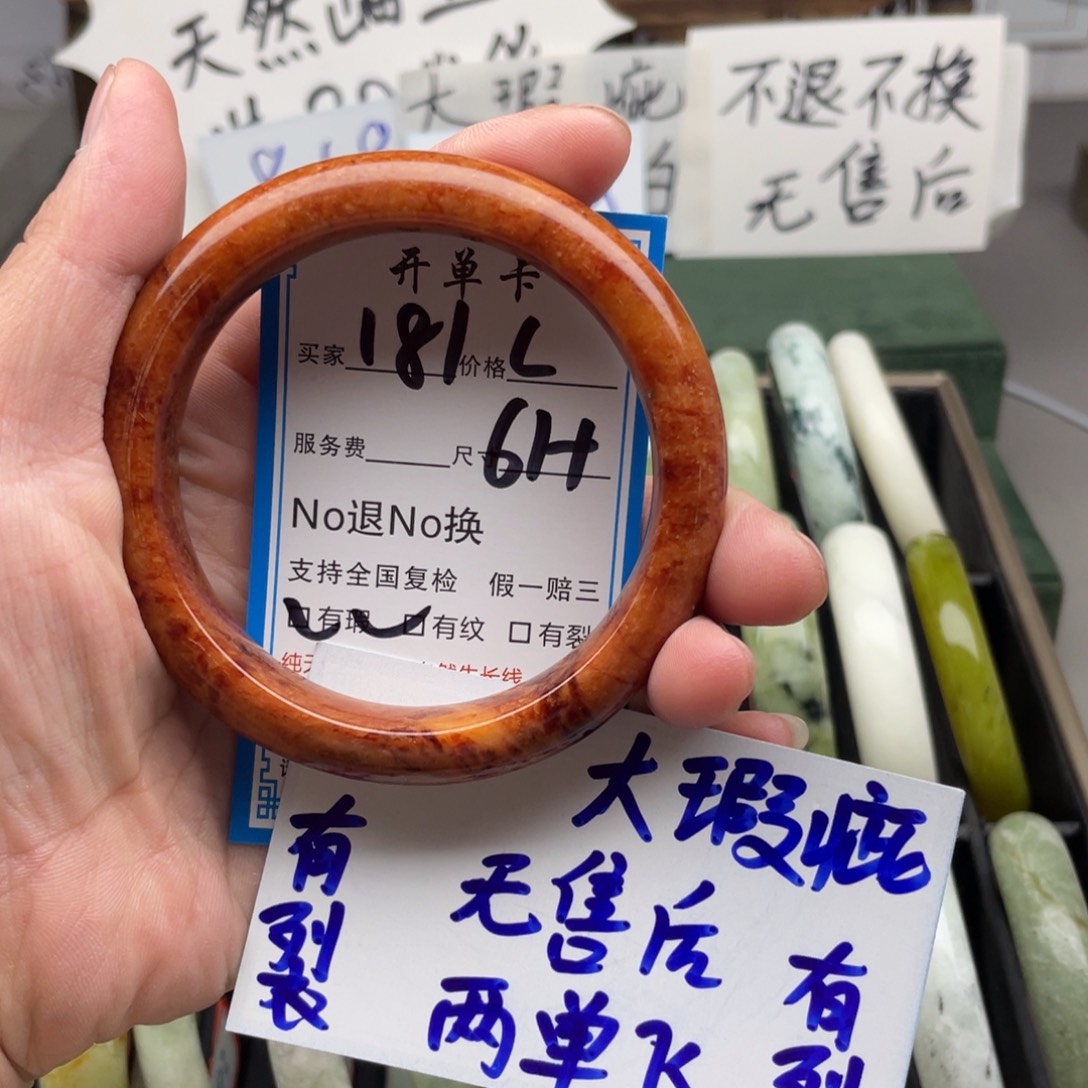 天然
大瑕疵
不退不换
无售后
开单卡
买家 181 价格 L
服务费 尺寸 6H
No退No换
支持全国复检 假一赔三
口有瑕 口有纹 口有裂
大瑕疵
无售后
两单
有裂
有裂